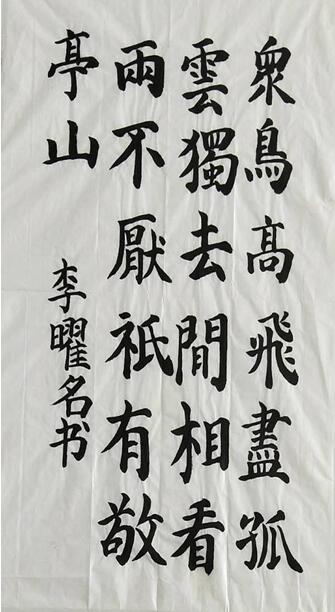 衆鳥高飛盡孤
雲獨去閒相看
兩不厭祇有敬
亭山
李曜名书